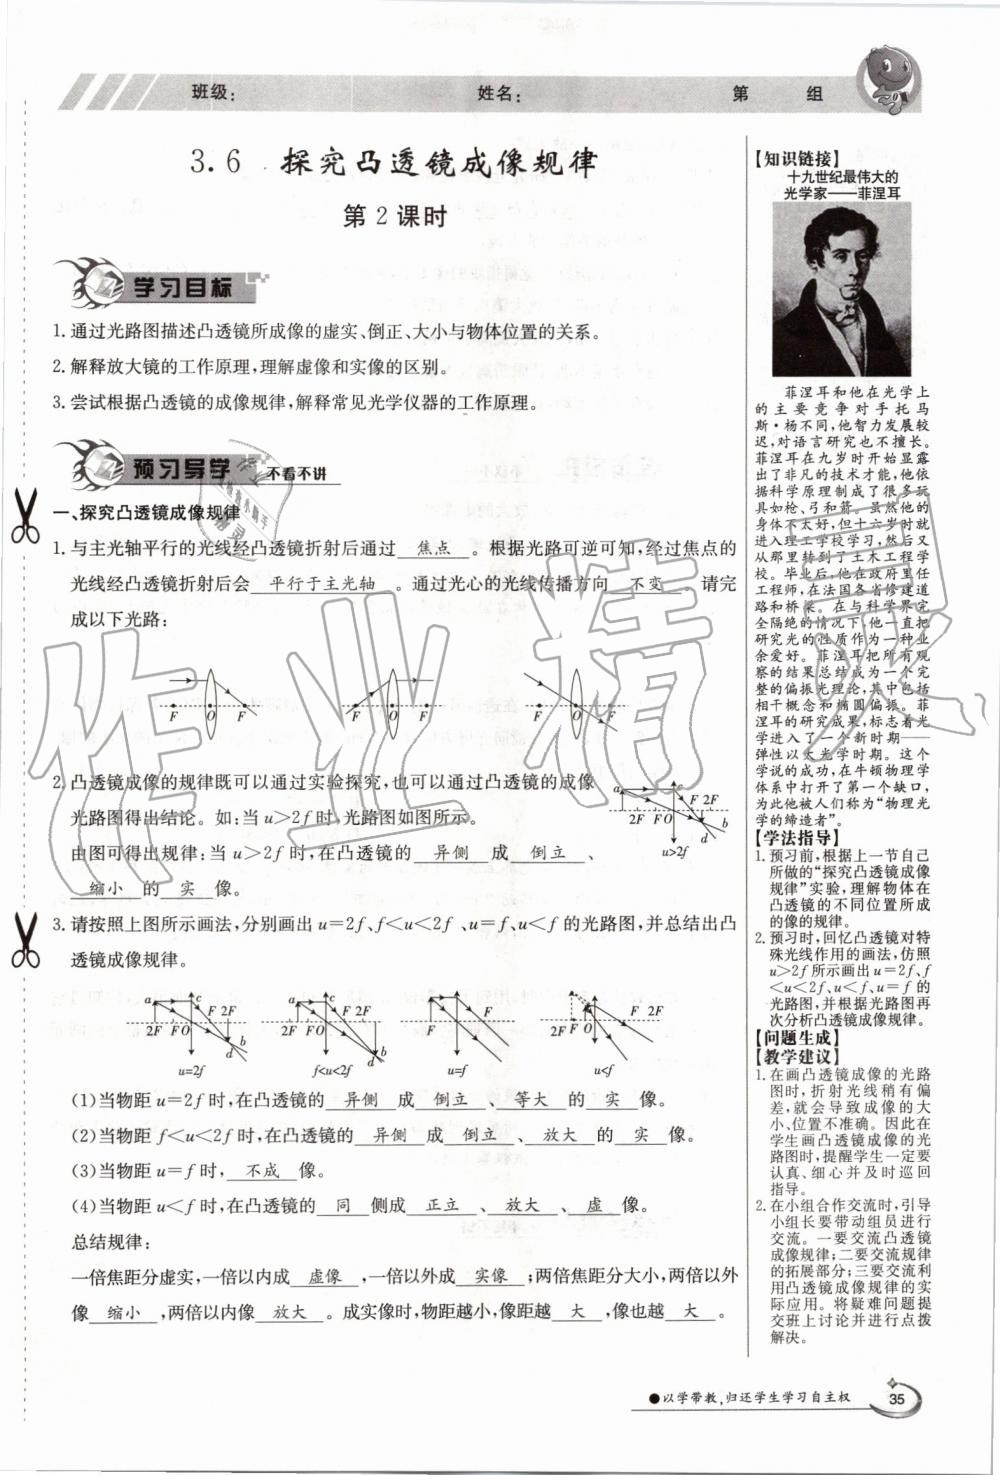 班级: 姓名: 第 组
3.6 探究凸透镜成像规律
第2课时
学习目标
1.通过光路图描述凸透镜所成像的虚实、倒正、大小与物体位置的关系。
2.解释放大镜的工作原理,理解虚像和实像的区别。
3.尝试根据凸透镜的成像规律,解释常见光学仪器的工作原理。
预习导学 不看不讲
一、探究凸透镜成像规律
1.与主光轴平行的光线经凸透镜折射后通过 焦点 。根据光路可逆可知,经过焦点的
光线经凸透镜折射后会 平行于主光轴 。通过光心的光线传播方向 不变 。请完
成以下光路:
F O F F O F F O F
2.凸透镜成像的规律既可以通过实验探究,也可以通过凸透镜的成像
光路图得出结论。如:当u>2f时,光路图如图所示。
由图可得出规律:当u>2f时,在凸透镜的 异侧 成 倒立 、
缩小 的 实 像。
a c F 2F
2F F O b
d
u>2f
3.请按照上图所示画法,分别画出u=2f、f<u<2f、u=f、u<f的光路图,并总结出凸
透镜成像规律。
a c F 2F
2F F O b
d
u=2f
a c F 2F
2F F O b
d
f<u<2f
F F
u=f
2F F O F
u<f
(1)当物距u=2f时,在凸透镜的 异侧 成 倒立 、 等大 的 实 像。
(2)当物距f<u<2f时,在凸透镜的 异侧 成 倒立 、 放大 的 实 像。
(3)当物距u=f时, 不成 像。
(4)当物距u<f时,在凸透镜的 同 侧成 正立 、 放大 、 虚 像。
总结规律:
一倍焦距分虚实,一倍以内成 虚像 ,一倍以外成 实像 ;两倍焦距分大小,两倍以外
像 缩小 ,两倍以内像 放大 。成实像时,物距越小,像距越 大 ,像也越 大 。
【知识链接】
十九世纪最伟大的
光学家——菲涅耳
菲涅耳和他在光学上
的主要竞争对手托马
斯·杨不同,他智力发展较
迟,对语言研究也不擅长。
菲涅耳在九岁时开始显露
出了非凡的技术才能,他依
据科学原理制成了很多玩
具如枪、弓和箭。虽然他的
身体不太好,但十六岁时就
进入理工学校学习,然后又
从那里转到了土木工程学
校。毕业后,他在政府里任
工程师,在法国各省修建道
路和桥梁。在与科学界完
全隔绝的情况下,他一直把
研究光的性质作为一种业
余爱好。菲涅耳把所有观
察的结果总结成为一个完
整的偏振光理论,其中包括
相干概念和椭圆偏振。菲
涅耳的研究成果,标志着光
学进入了一个新时期——
弹性以太光学时期。这个
学说的成功,在牛顿物理学
体系中打开了第一个缺口,
为此他被人们称为“物理光
学的缔造者”。
【学法指导】
1.预习前,根据上一节自己
所做的“探究凸透镜成像
规律”实验,理解物体在
凸透镜的不同位置所成
的像的规律。
2.预习时,回忆凸透镜对特
殊光线作用的画法,仿照
u>2f所示画出u=2f、f
<u<2f、u<f、u=f的
光路图,并根据光路图再
次分析凸透镜成像规律。
【问题生成】
【教学建议】
1.在画凸透镜成像的光路
图时,折射光线稍有偏
差,就会导致成像的大
小、位置不准确。因此在
学生画凸透镜成像的光
路图时,提醒学生一定要
认真、细心并及时巡回
指导。
2.在小组合作交流时,引导
小组长要带动组员进行
交流。一要交流凸透镜
成像规律;二要交流规律
的拓展部分;三要交流利
用凸透镜成像规律的实
际应用。将疑难问题提
交班上讨论并进行点拨
解决。
●以学带教,归还学生学习自主权
35
作业精灵